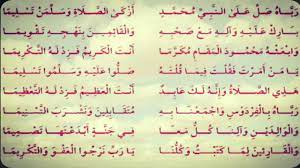 رَبَّاهُ صَلِّ عَلَى النَّبِيِّ مُحَمَّدٍ أَزْكَى الصَّلَاةِ وَسَلِّمَنْ تَسْلِيمَا
بَارِكْ عَلَيْهِ وَآلِهِ مَعَ صَحْبِهِ وَالْقَائِمِينَ بِنَهْجِهِ تَقْوِيمَا
رَبَّاهُ وَاكْتُبْ فِي قُلْنَا أَنْتَ الْكَرِيمُ فَزِدْ لَهُ التَّكْرِيمَا
رَبَّاهُ قَدْ قُلْتَ فِيمَا قُلْتَهُ صَلُّوا عَلَيْهِ وَسَلِّمُوا تَسْلِيمَا
هٰذِي الصَّلَاةُ وَإِنَّهُ لَكَ عَابِدٌ أَنْتَ الْعَظِيمُ فَزِدْ لَهُ التَّعْظِيمَا
رَبَّاهُ بِالْفِرْدَوْسِ وَاجْمَعْنَا بِهِ مُتَقَابِلِينَ وَنَشْرَبُ التَّسْنِيمَا
وَالْوَالِدَيْنِ وَآلَنَا كُلٌّ مَعًا فِي جَنَّةٍ أَبْدَعْتَهَا تَصْمِيمَا
وَالْقَارِئِينَ لِمَا كَتَبْتُ وَكُلَّنَا يَا رَبِّ نَرْجُو الْعَفْوَ وَالتَّكْرِيمَا